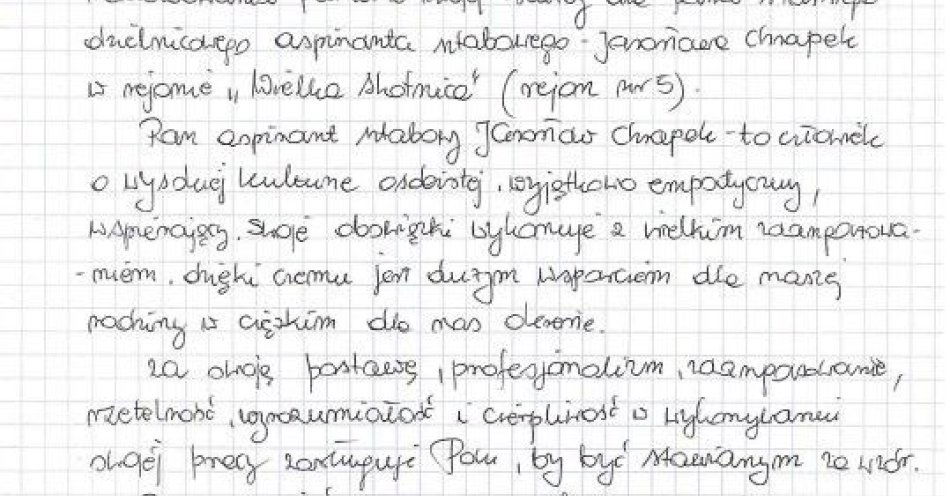 dzielnicowego aspiranta sztabowego - Jarosława Chrapek
w rejonie „Wielka Skotnica" (rejon nr 5).
Pan aspirant sztabowy Jarosław Chrapek - to człowiek
o wysokiej kulturze osobistej, wyjątkowo empatyczny,
wspierający. Swoje obowiązki wykonuje z wielkim zaangażowa-
-niem, dzięki czemu jest dużym wsparciem dla naszej
rodziny w ciężkim dla nas okresie.
Za swoją postawę, profesjonalizm, zaangażowanie,
rzetelność, wyrozumiałość i cierpliwość w wykonywaniu
swojej pracy zasługuje Pan, by być stawianym za wzór.